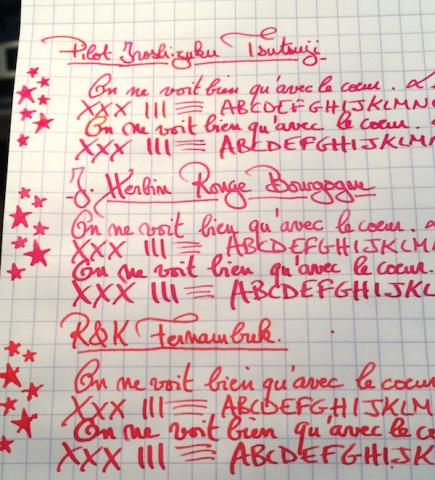 Pilot Iroshizuku Tsutsuji
On ne voit bien qu'avec le coeur.
XXX III ABCDEFGHIJKLMN
On ne voit bien qu'avec le coeur.
XXX III ABCDEFGHIJKLMN
J. Herbin Rouge Bourgogne
On ne voit bien qu'avec le coeur.
XXX III ABCDEFGHIJKLM
On ne voit bien qu'avec le coeur.
XXX III ABCDEFGHIJKL
R&K Fernambuk.
On ne voit bien qu'avec le coeur
XXX III ABCDEFGHIJKLM
On ne voit bien qu'avec le
XXX III ABCDEFGHIJKL